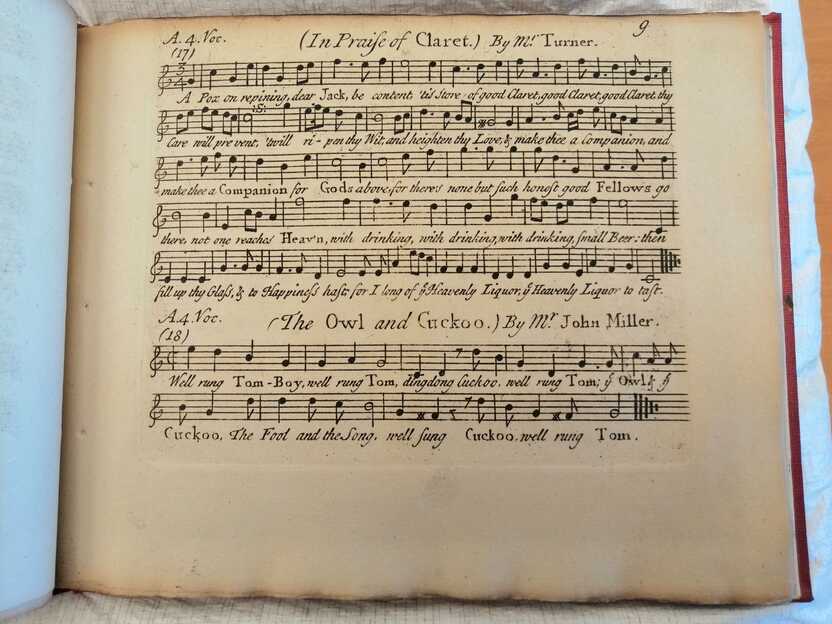 A. 4. Voc. (In Praiſe of Claret.) By Mr. Turner. 9
(17)
A Pox on repining, dear Jack, be content, 'tis Store of good Claret, good Claret, good Claret, thy
:S:
Care will prevent, 'twill ri-pen thy Wit, and heighten thy Love, & make thee a Companion, and
make thee a Companion for Gods above, for there's none but ſuch honeſt good Fellows go
there, not one reaches Heav'n, with drinking, with drinking, with drinking, ſmall Beer: then
fill up thy Glaſs, & to Happineſs haſt; for I long of ye Heavenly Liquor, ye Heavenly Liquor to taſt.
A. 4. Voc. (The Owl and Cuckoo.) By Mr John Miller.
(18)
Well rung Tom-Boy, well rung Tom, dingdong Cuckoo, well rung Tom; ye Owl & ye
Cuckoo, The Fool and the Song, well ſung Cuckoo, well rung Tom.